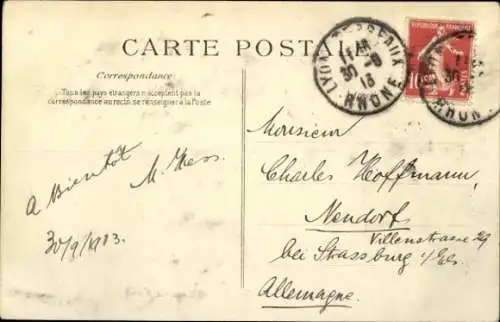 CARTE POSTALE
Correspondance
Tous les pays étrangers n'acceptent pas la
correspondance au recto, se renseigner à la Poste
A Bientôt
M. Hess.
30/9/1913.
LYON TERREAUX
30-9
13
RHONE
REPUBLIQUE FRANÇAISE
10
RHONE
Monsieur
Charles Hoffmann,
Neudorf
Villenstrasse 29
bei Strassburg i/Els.
Allemagne.